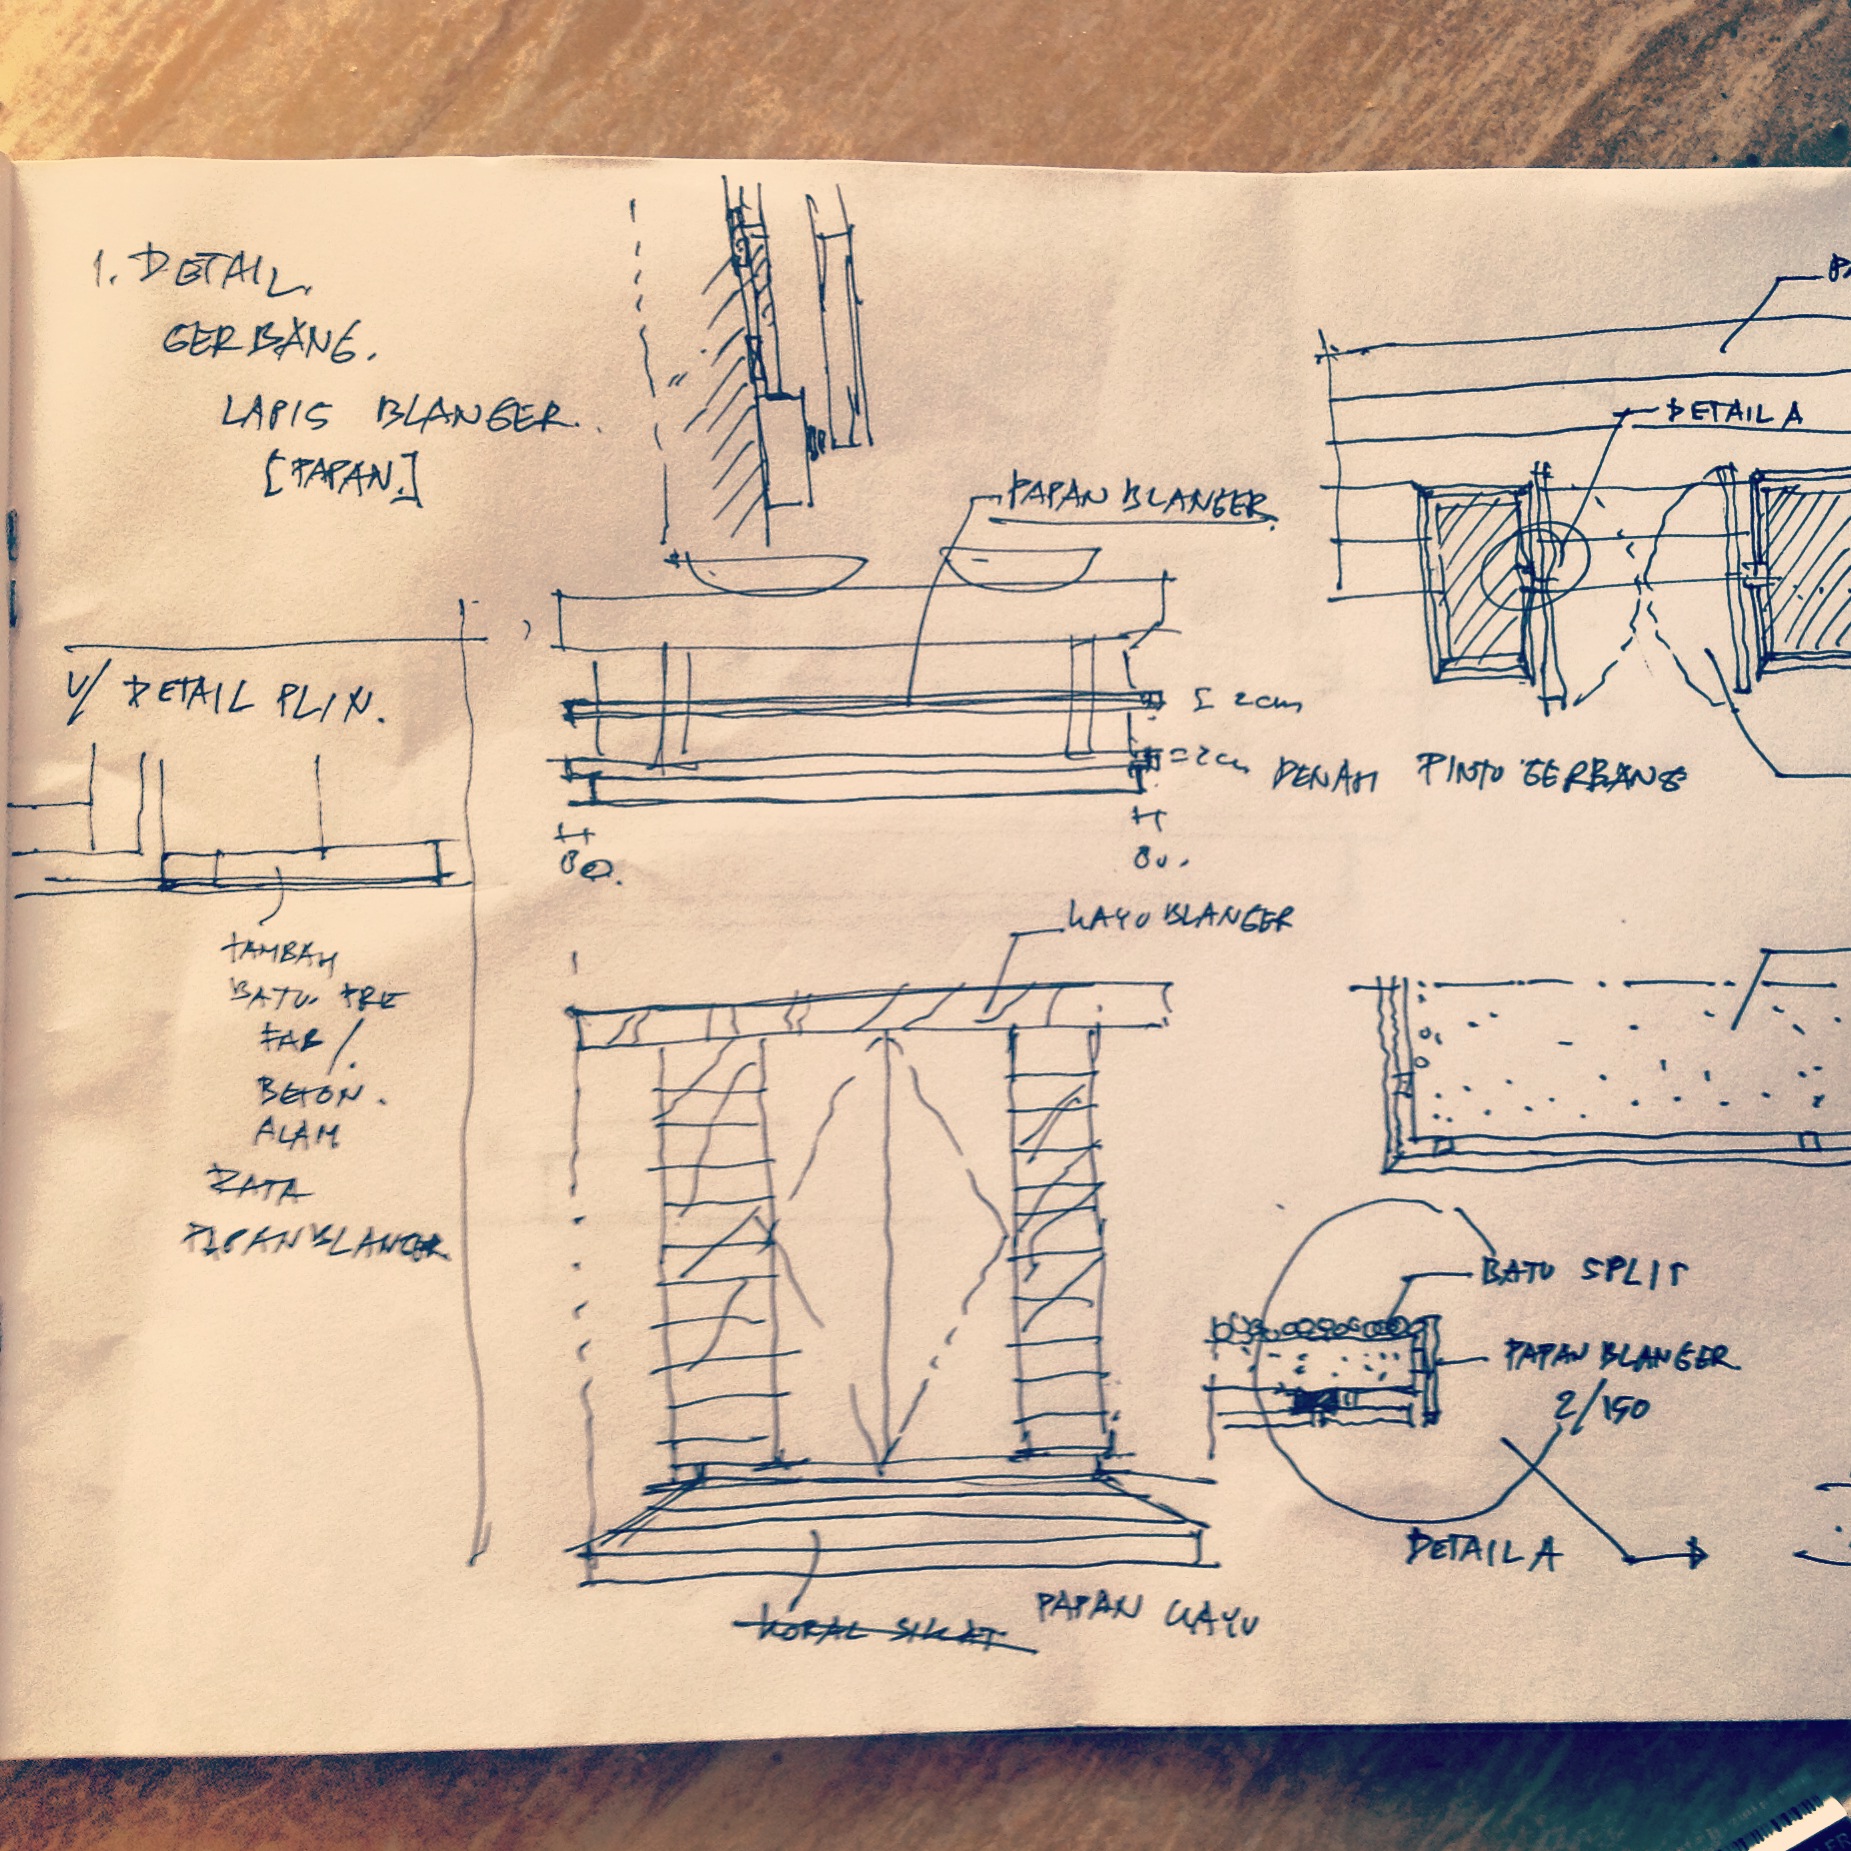 1. DETAIL.
GERBANG.
LAPIS BLANGER.
[PAPAN]
PAPAN BLANGER
DETAIL A
V/ DETAIL PLIN.
2cm
= 2cm
DENAH PINTU GERBANG
80.
KAYU BLANGER
TAMBAH
BATU
FAB/.
BETON.
ALAM
RATA
PAPAN BLANGER
BATU SPLIT
PAPAN BLANGER
2/150
DETAIL A
KORAL SIKAT
PAPAN KAYU